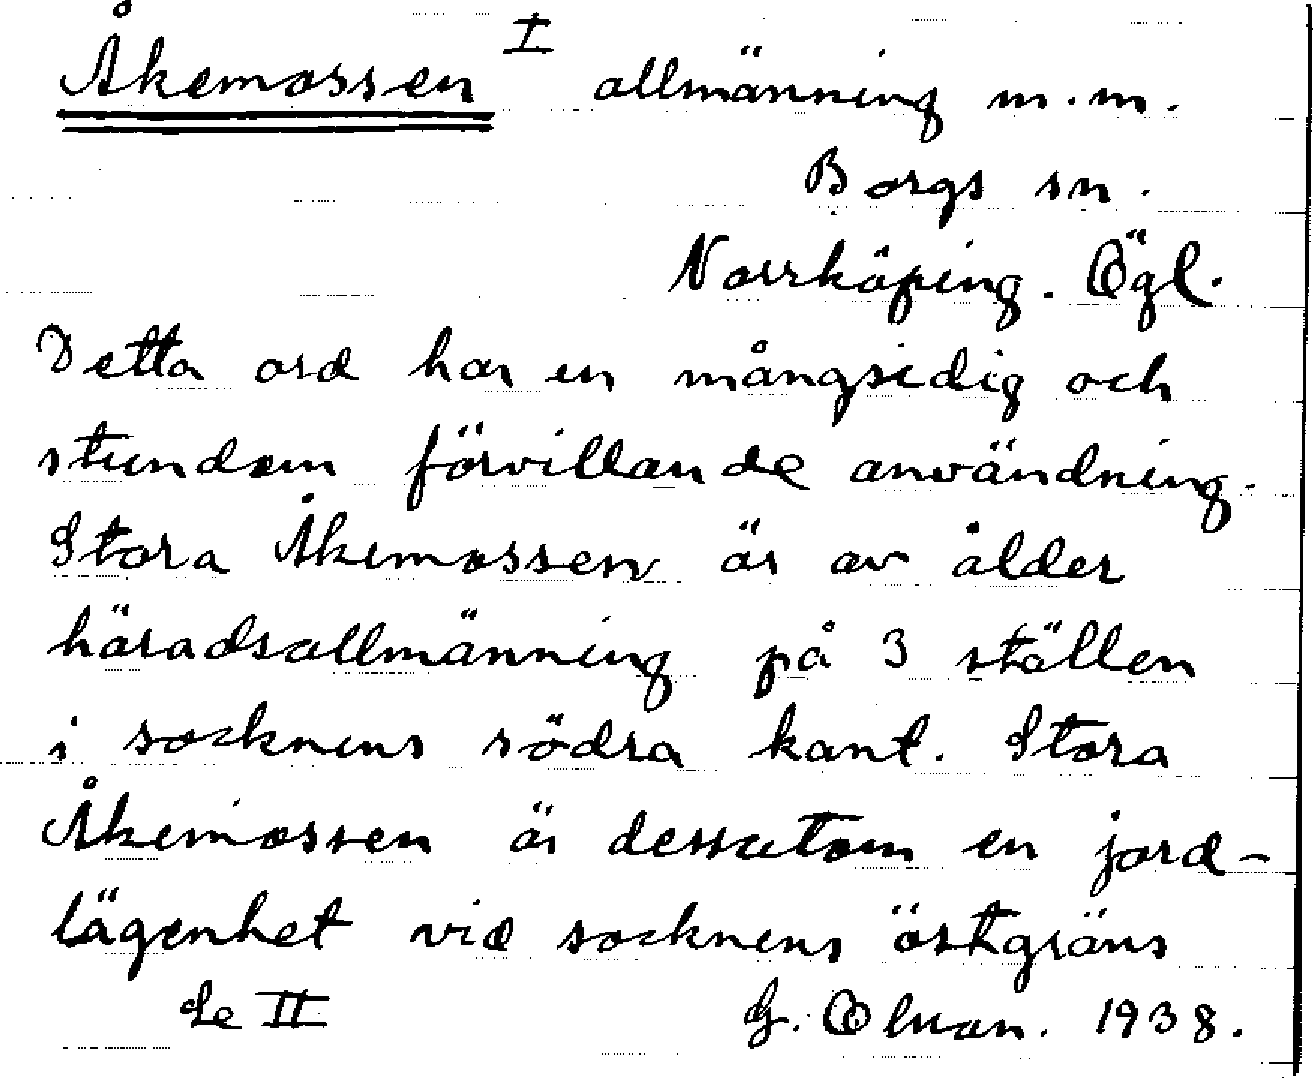 Åkemossen I allmänning m.m.
Borgs sn.
Norrköping. Ögl.
Detta ord har en mångsidig och
stundom förvillande användning.
Stora Åkemossen är av ålder
häradsallmänning på 3 ställen
i socknens södra kant. Stora
Åkemossen är dessutom en jord-
lägenhet vid socknens östgräns
Se II G. Olsson. 1938.